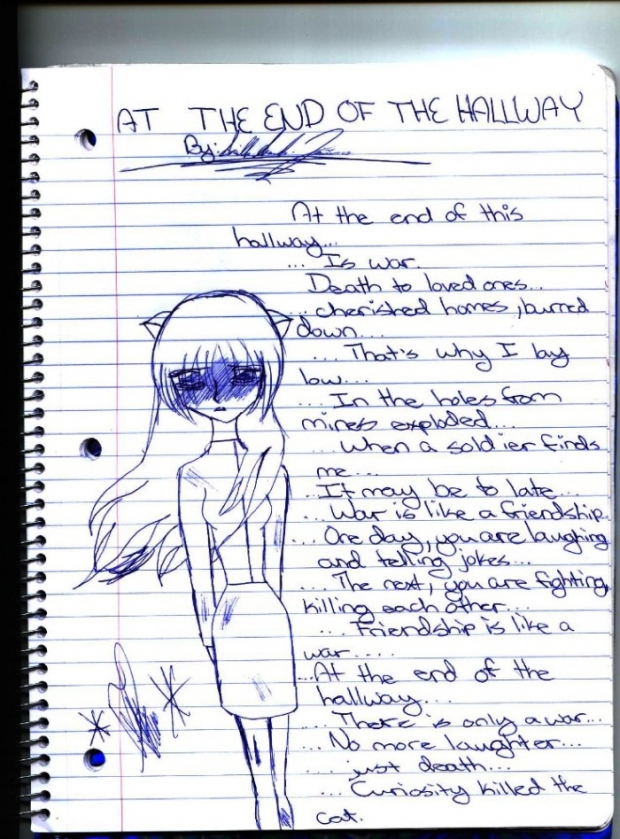 AT THE END OF THE HALLWAY
By:
At the end of this
hallway...
... Is war.
Death to loved ones...
...cherished homes, burned
down...
... That's why I lay
low...
... In the holes from
mines exploded...
... When a soldier finds
me...
...It may be to late...
... War is like a friendship.
... One day, you are laughing
and telling jokes...
... The next, you are fighting,
killing each other...
... Friendship is like a
war....
...At the end of the
hallway...
... There is only a war...
... No more laughter...
... just death...
... Curiosity killed the
cat.